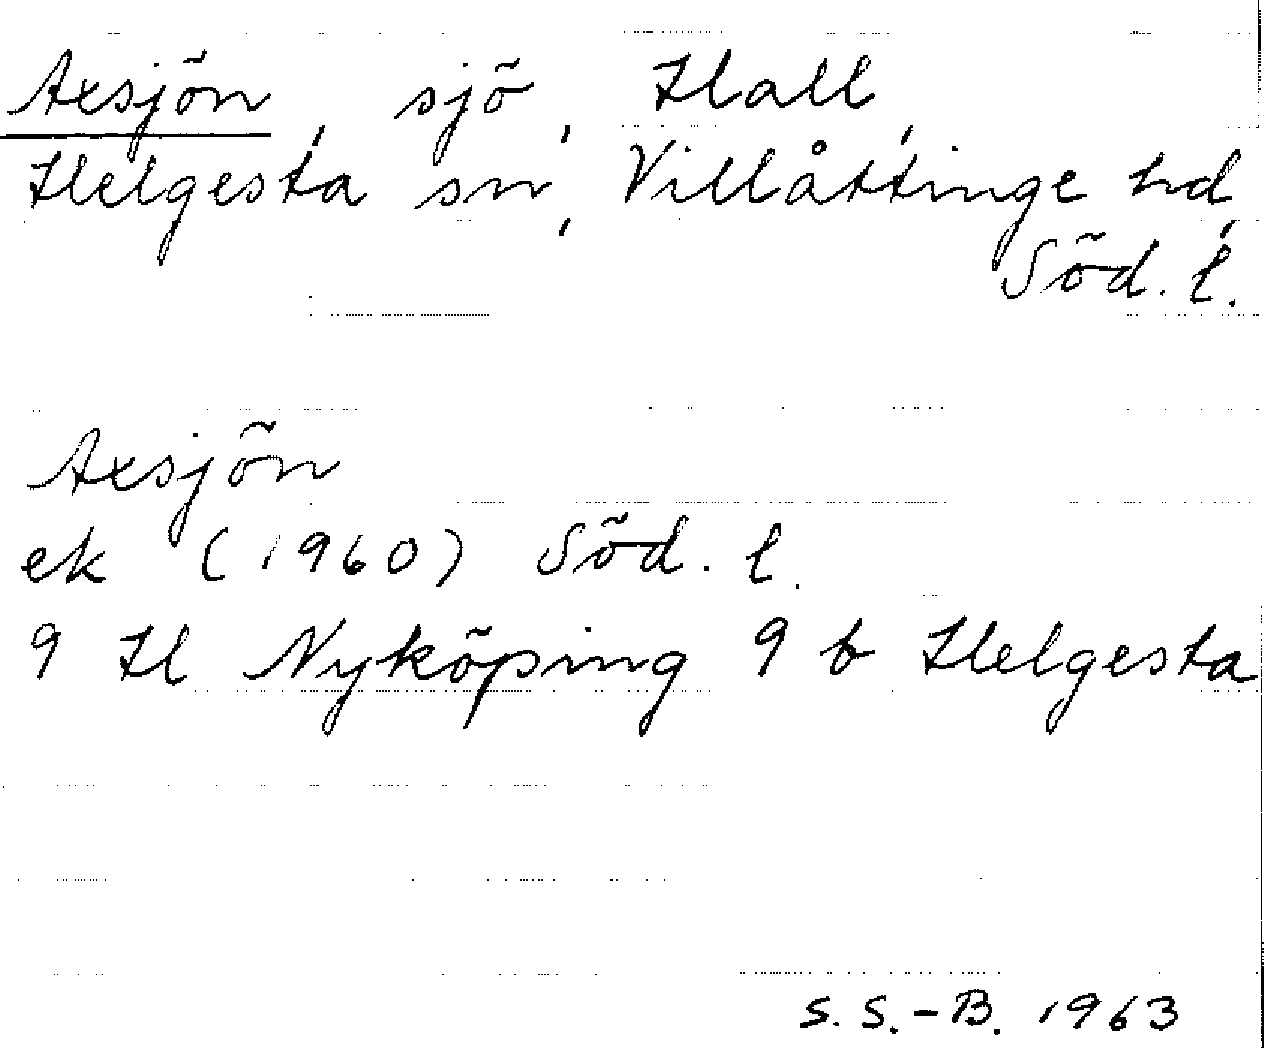 Axsjön, sjö, Hall,
Helgesta sn, Villåttinge hd,
Söd. l.
Axsjön
ek (1960) Söd. l.
9 H Nyköping 9 b Helgesta
S. S.-B. 1963